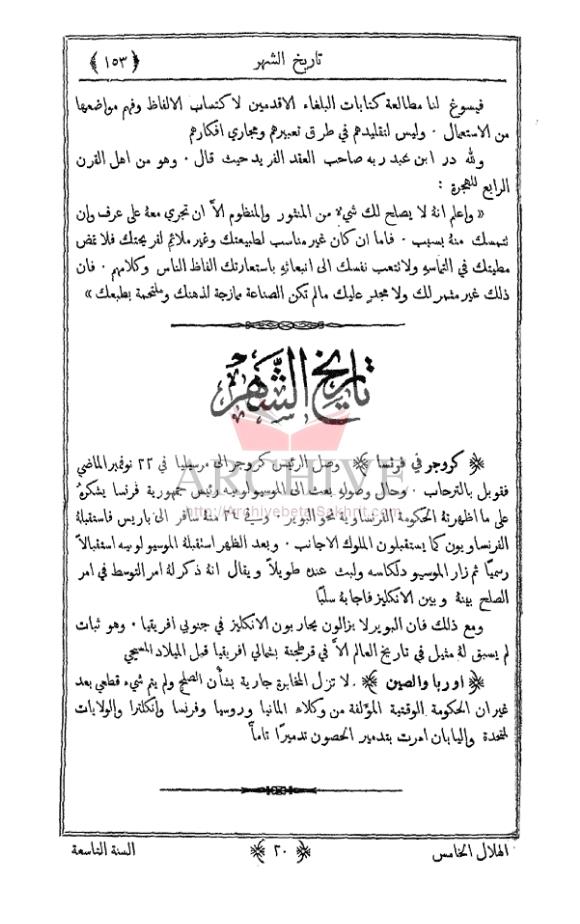 تاريخ الشهر
﴿ ١٥٣ ﴾
فيسوغ لنا مطالعة كتابات البلغاء الاقدمين لاكتساب الالفاظ وفهم مواضعها
من الاستعمال ٠ وليس لنقليدهم في طرق تعبيرهم ومجاري افكارهم
ولله در ابن عبد ربه صاحب العقد الفريد حيث قال ٠ وهو من اهل القرن
الرابع للهجرة :
« واعلم انهُ لا يصلح لك شيءٌ من المنثور والمنظوم الاَّ ان تجري معهُ على عرف وان
لتمسك منهُ بسبب ٠ فاما ان كان غير مناسب لطبيعتك وغير ملائمٍ لقريحتك فلا تنضِ
مطيتك في التماسهِ ولا نتعب نفسك الى انبعاثهِ باستعارتك الفاظ الناس وكلامهم ٠ فان
ذلك غير مثمر لك ولا مجدٍ عليك مالم تكن الصناعة ممازجة لذهنك وملتحمة بطبعك »
تاريخ الشهر
﴿ كروجر في فرنسا ﴾ وصل الرئيس كروجر الى مرسيليا في ٢٢ نوفمبر الماضي
فقوبل بالترحاب ٠ وحال وصوله بعث الى الموسيو لوبيه رئيس جمهورية فرنسا يشكرهُ
على ما اظهرتهُ الحكومة الفرنساوية نحو البوير ٠ وفي ٢٤ منهُ سافر الى باريس فاستقبلهُ
الفرنساويون كما يستقبلون الملوك الاجانب ٠ وبعد الظهر استقبلهُ الموسيو لوبيه استقبالاً
رسميًا ثم زار الموسيو دلكاسه ولبث عندهُ طويلاً ويقال انهُ ذكر لهُ امر التوسط في امر
الصلح بينهُ وبين الانكليز فاجابهُ سلبًا
ومع ذلك فان البوير لا يزالون يحاربون الانكليز في جنوبي افريقيا ٠ وهو ثبات
لم يسبق لهُ مثيل في تاريخ العالم الاَّ في قرطجنة بشمالي افريقيا قبل الميلاد المسيحي
﴿ اوربا والصين ﴾ لا تزل المخابرة جارية بشأن الصلح ولم يتم شيء قطعي بعد
غير ان الحكومة الوقتية المؤلفة من وكلاء المانيا وروسيا وفرنسا وانكلترا والولايات
المتحدة واليابان امرت بتدمير الحصون تدميرًا تامًّا
الهلال الخامس
﴿ ٢٠ ﴾
السنة التاسعة
ARCHIVE
http://Archivebeta.Sakhrit.com